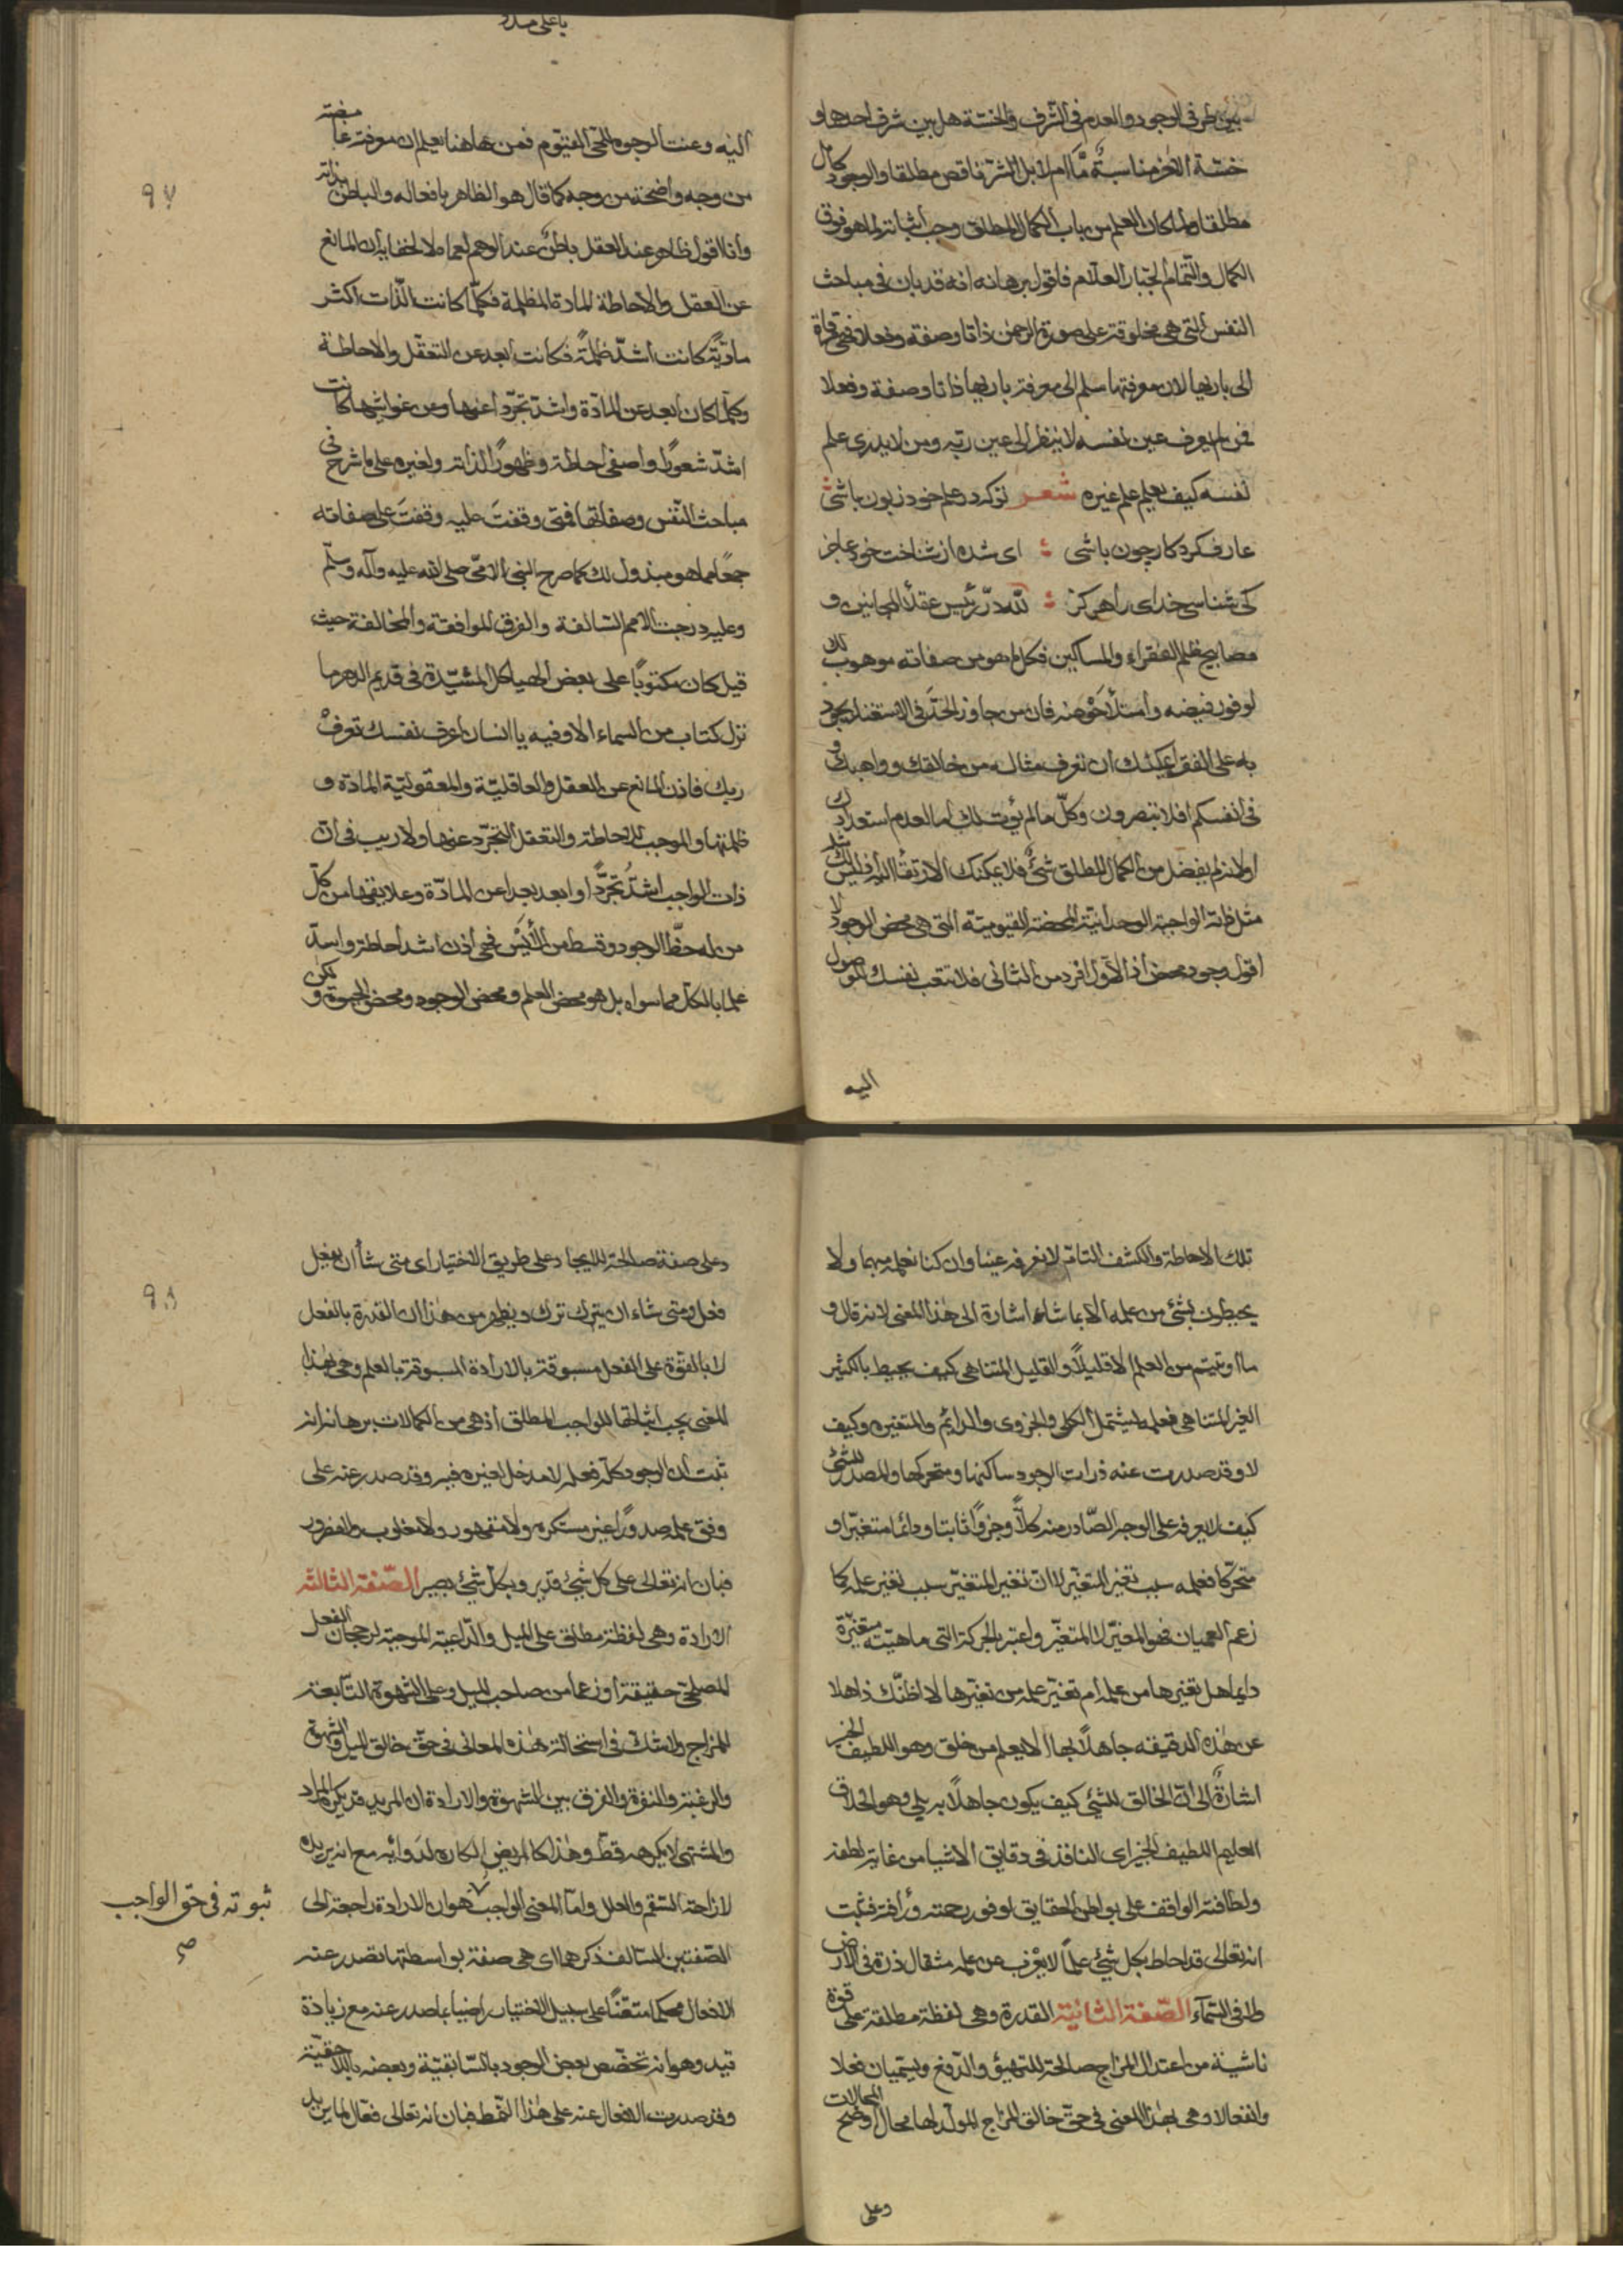 بين طرفي الوجود والعدم في الشرف والخسّة هل بين شرف احدهما و
خسّة الآخر مناسبةٌ مّا ام لا بل الشرّ ناقص مطلقا والوجود كامل
مطلقا ولما كان العلم من باب الكمال المطلق وجب اثباته لما هو فوق
الكمال والتّمام الجبّار العلّام فاقول برهانه انه قد بان في مباحث
النفس التي هي مخلوقة على صورة الرحمن ذاتا وصفة وفعلا فهي مرقاة
الى باريها لان معرفتها سلم الى معرفة باريها ذاتا وصفة وفعلا
فمن لم يعرف عين نفسه لا ينظر الى عين ربّه ومن لا يدري علم
نفسه كيف يعلم علم غيره شعر تو كه در علم خود زبون باشى
عارف كردكار چون باشى اى شده از شناخت خود عاجز
كى شناسى خداى را هركز لله درّ رئيس عقلاء المجانين و
مصابيح ظلم الفقراء والمساكين فكل ما هو من صفاته موهوب لك
لوفور فيضه فان من جاوز الحدّ في الاستغناء يجود
به على الفقراء يمكنك ان تعرف مثاله من خالقك وواهبك و
في انفسكم افلا تبصرون وكلّ ما لم يؤت لك اما لعدم استعدادك
او لانه لم يفضل من الكمال المطلق شيءٌ فلا يمكنك الارتقاء اليه فليس لك
مثل ذاته الواجبة الوحدانيّة المحضة القيوميّة التي هي محض الوجود لا
اقول وجود محض اذ الاول افرد من الثاني فلا تتعب نفسك للوصول
اليه
يا على مدد
٩٧
اليه وعنت الوجوه للحيّ القيّوم فمن هاهنا يعلم ان معرفته غامضة
من وجه واضحة من وجه كما قال هو الظاهر بافعاله والباطن بذاته
وانا اقول ظاهر عند العقل باطنٌ عند الوهم لعماه لا لخفائه اذ المانع
عن العقل والاحاطة المادة المظلمة فكلّما كانت الذّات اكثر
ماديّة كانت اشدّ ظلمةً فكانت ابعد عن التعقّل والاحاطة
وكلّما كان ابعد عن المادّة واشدّ تجرّدا عنها وعن غواشيها كانت
اشدّ شعورًا واصفى احاطة وظهورًا لذاته ولغيره على ما شرح في
مباحث النّفس وصفاتها فمتى وقفتَ عليه وقفتَ على صفاته
جمعًا مما هو مبذول لك كما صرح النبي الامّي صلى الله عليه وآله وسلّم
وعليه درجت الامم السالفة والفرق الموافقة والمخالفة حيث
قيل كان مكتوبًا على بعض الهياكل المشيّدة في قديم الدهر ما
نزل كتاب من السماء الا وفيه يا انسان اعرف نفسك تعرفْ
ربك فاذن المانع عن العقل والعاقليّة والمعقوليّة المادّة و
ظلمتها والموجب للاحاطة والتعقل التجرّد عنها ولا ريب في انّ
ذات الواجب اشدّ تجرّدًا وابعد بعدا عن المادّة وعلايقها من كلّ
من له حظّ الوجود وقسط من الأيْس فهي اذن اشد احاطة واسدّ
علما بالكل مما سواه بل هو محض العلم ومحض الوجود ومحض الحيوة ولكن
تلك الاحاطة والكشف التامّ لا نعرفه عينا وان كنا نعلمه مبهما ولا
يحيطون بشئ من علمه الا بما شاء اشارة الى هذا المعنى لانه قال و
ما اوتيتم من العلم الا قليلًا والقليل المتناهي كيف يحيط بالكثير
الغير المتناهي فعلمه يشتمل الكلي والجزوى والدائم والمتغير وكيف
لا وقد صدرت عنه ذرات الوجود ساكنها ومتحركها والمصدر للشئ
كيف لا يعرفه على الوجه الصّادر منه كلّا وجزوًا ثابتا ودائما متغيّرا و
متحرّكا فعلمه سبب تغير المتغيّر لا انّ تغير المتغيّر سبب تغير علمه كما
زعم العميان فهو المغيّر لا المتغيّر واعتبر بالحركة التي ماهيّته متغيّرة
دايما هل تغيرها من علمه ام تغيّر علمه من تغيّرها لا اظنّك ذاهلا
عن هذه الدقيقه جاهلًا بها الا يعلم من خلق وهو اللطيف الخبير
اشارةٌ الى انّ الخالق للشئ كيف يكون جاهلًا به بلى وهو الخلاق
العليم اللطيف الخبير اى النافذ في دقايق الاشيا من غاية لطفه
ولطافته الواقف على بواطن الحقايق لوفور رحمته ورأفته فثبت
انه تعالى قد احاط بكل شئ علمًا لا يعزب عن علمه مثقال ذرة في الارض
ولا في السّماء الصّفة الثانية القدرة وهي لفظة مطلقة على قوة
ناشية من اعتدال المزاج صالحة للتهيؤ والدّفع ويسمّيان فعلا
وانفعالا وهي بهذا المعنى في حقّ خالق المزاج المولّد لها محال اوضح المحالات
وعلى
٩٨
وعلى صفة صالحة للايجاد على طريق الاختيار اى متى شأ ان يفعل
فعل ومتى شاء ان يترك ترك ويظهر من هذا ان القدرة بالفعل
لا بالقوّة على الفعل مسبوقة بالارادة المسبوقة بالعلم وهي بهذا
المعنى يجب اثباتها للواجب المطلق اذ هي من الكمالات برهانه انه
ثبت ان الوجود كلّه فعله لا مدخل لغيره فيه وقد صدر عنه على
وفق علمه صدورًا غير مستكره ولا مقهور ولا مغلوب
فبان انه تعالى على كل شئ قدير وبكل شئ بصير الصّفة الثالثة
الارادة وهي لفظة مطلق على الميل والدّاعية الموجبة لرجحان الفعل
المصلحيّ حقيقة او زعما من صاحب الميل وعلى الشهوة التّابعة
للمزاج ولا شك في استحالة هذه المعانى في حقّ خالق الميل والشهوة
والرغبة والنفرة والفرق بين الشهوة والارادة ان المريد قد يكره المراد
والمشتهى لا يكرهه قطّ وهذا كالمريض الكاره لدوائه مع انه يريده
لازاحة السّقم والعلل وامّا المعنى الواجب هو ان الارادة راجعة الى
ثبوته في حق الواجب
صح
الصّفتين السّالف ذكرهما اى هي صفة بواسطتها تصدر عنه
الافعال محكما متقنًا على سبيل الاختيار راضيا بما صدر عنه مع زيادة
قيد وهو انه تخصّص بعض الوجود بالسّابقيّة وبعضه باللاحقيّة
وقد صدرت الافعال عنه على هذا النّمط فبان انه تعالى فعّال لما يريد